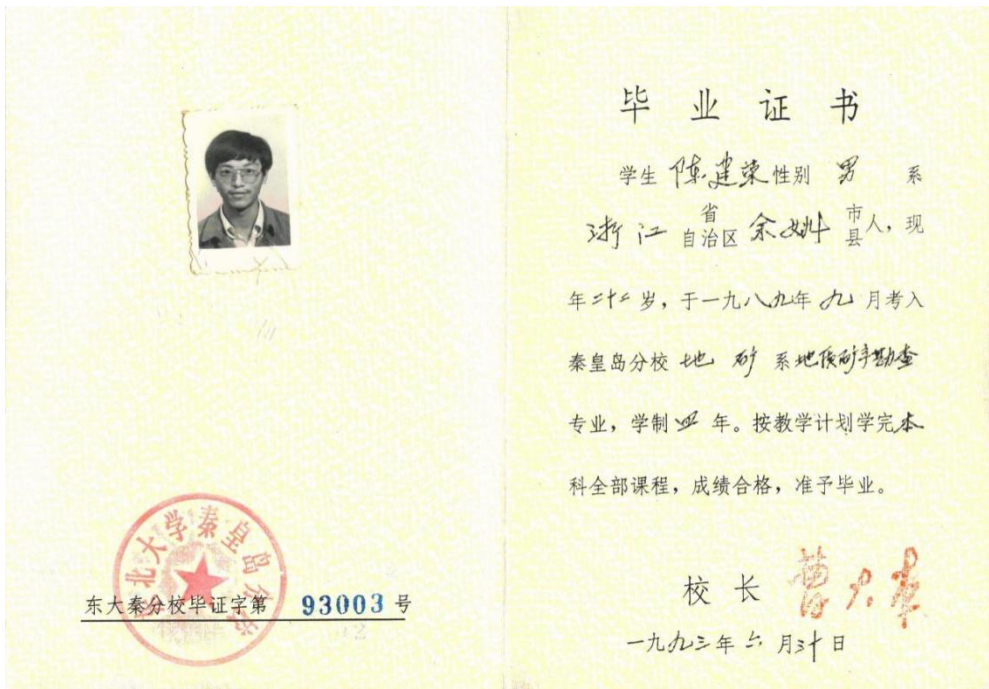 东北大学秦皇岛分校
东大秦分校毕证字第 93003 号
毕业证书
学生 陈建荣 性别 男 系
浙江 省自治区 余姚 市县人，现
年二十二岁，于一九八九年九月考入
秦皇岛分校 地 矿 系地质矿产勘查
专业，学制四年。按教学计划学完本
科全部课程，成绩合格，准予毕业。
校长
一九九三年六月三十日